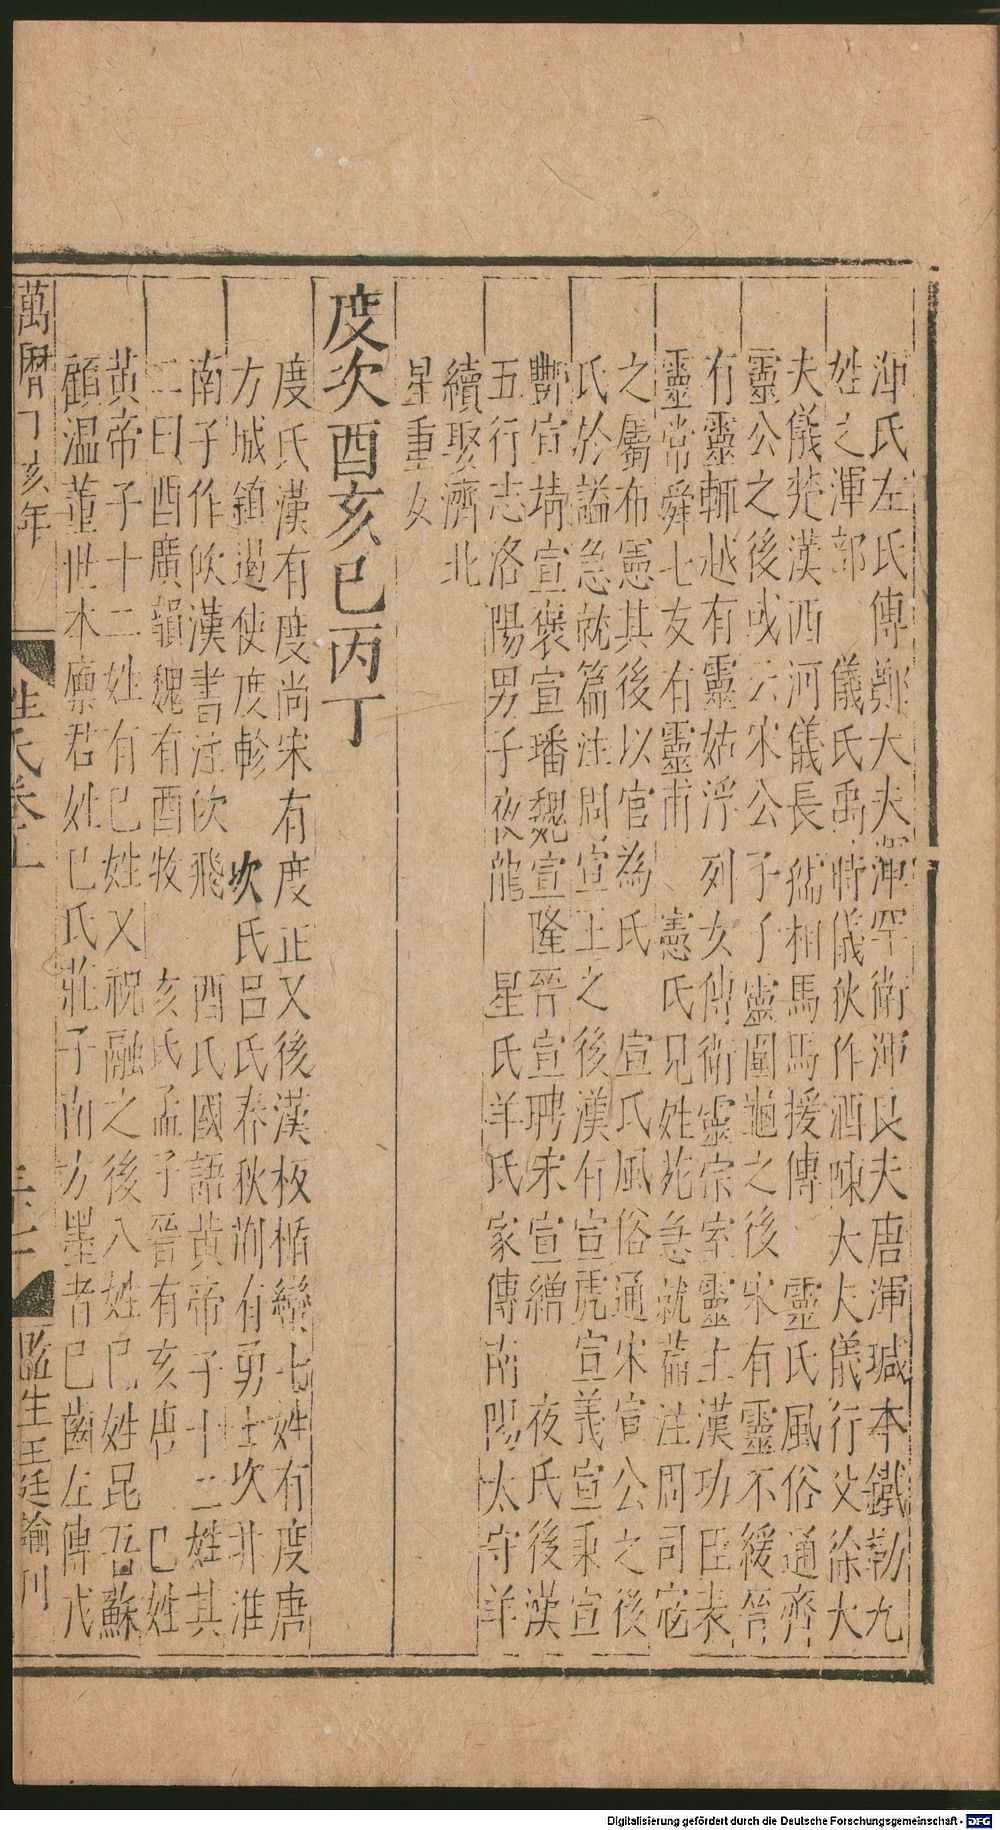 渾氏左氏傳鄭大夫渾罕衛渾良夫唐渾瑊本鐵勒九
姓之渾部　儀氏禹時儀狄作酒陳大夫儀行父徐大
夫儀楚漢西河儀長孺相馬馬援傳　靈氏風俗通齊
靈公之後或云宋公子子靈圍龜之後宋有靈不緩晉
有靈輒越有靈姑浮列女傳衛靈宗室靈王漢功臣表
靈常舜七友有靈甫　憲氏兄姓苑急就篇注周司寇
之屬布憲其後以官為氏　宣氏風俗通宋宣公之後
氏於謚急就篇注周宣王之後漢有宣虎宣義宣秉宣
酆宣靖宣褒宣璠魏宣隆晉宣聘宋宣繒　夜氏後漢
五行志洛陽男子夜龍　星氏羊氏家傳南陽太守羊
續娶濟北
星重女
度次酉亥巳丙丁
度氏漢有度尚宋有度正又後漢板楯蠻七姓有度唐
方城鎮遏使度軫　次氏呂氏春秋荊有勇士次非淮
南子作佽漢書注佽飛　酉氏國語黃帝子十二姓其
二曰酉廣韻魏有酉牧　亥氏孟子晉有亥唐　巳姓
黃帝子十二姓有巳姓又祝融之後八姓巳姓昆吾蘇
顧温董世本廩君姓巳氏莊子南方墨者巳齒左傳戎
萬曆丁亥年　姓氏卷上　監生王廷諭刊
Digitalisierung gefördert durch die Deutsche Forschungsgemeinschaft - DFG